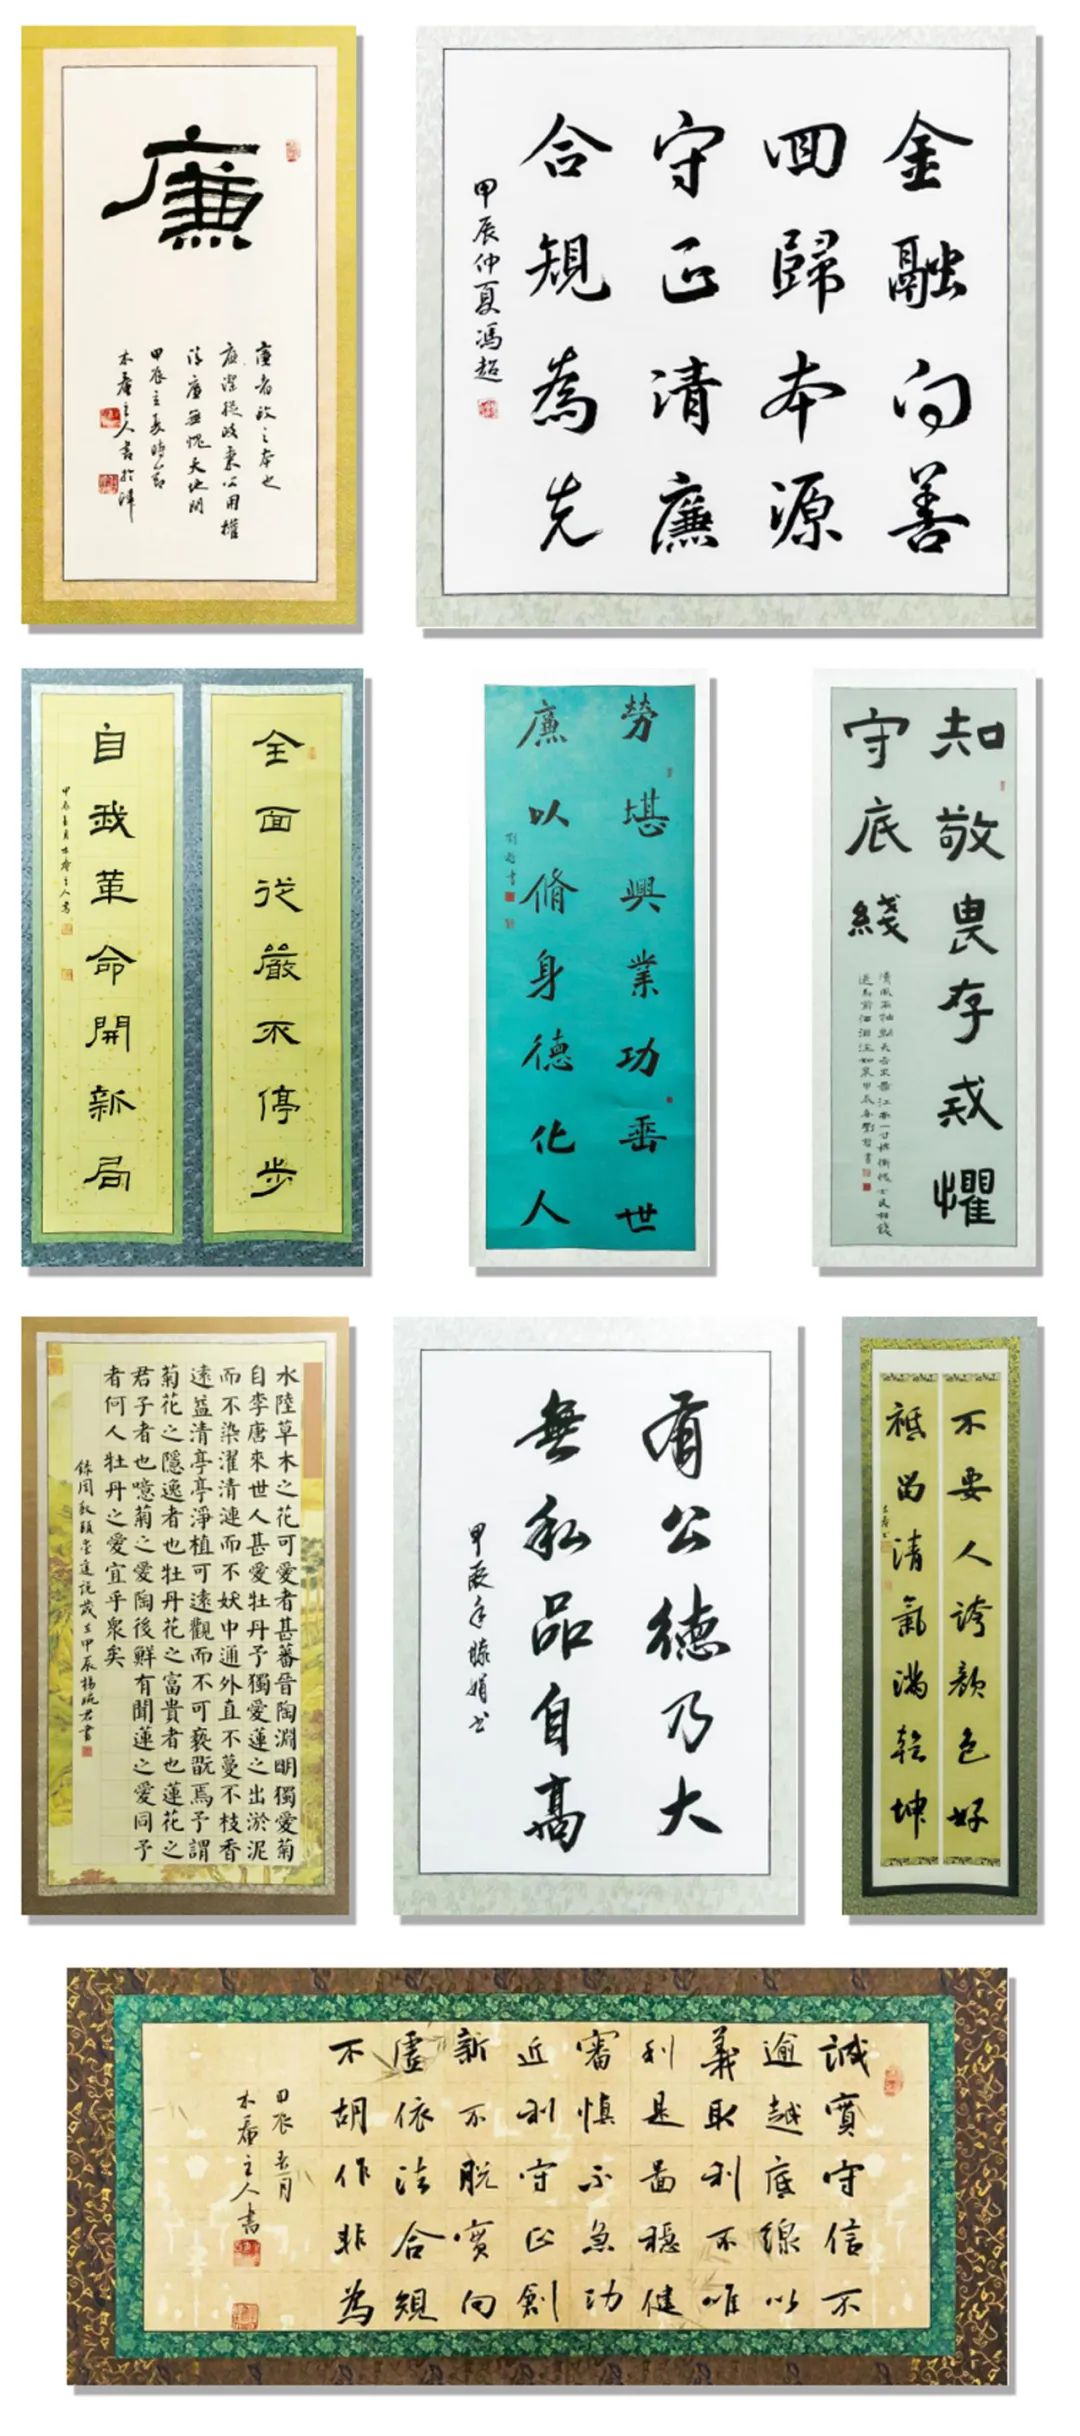 廉
廉者政之本也
廉潔從政秉公用權
清廉無愧天地間
甲辰立夏時節
木庵主人書於津
金融向善
回歸本源
守正清廉
合規為先
甲辰仲夏馮超
全面從嚴不停步
自我革命開新局
甲辰五月木庵主人書
勞堪興業功垂世
廉以脩身德化人
知敬畏存戒懼
守底綫
清風兩袖朝天去不帶江南一寸棉慚愧士民相餞
送馬前洒淚注如泉甲辰春劉哲書
水陸草木之花可愛者甚蕃晉陶淵明獨愛菊
自李唐來世人甚愛牡丹予獨愛蓮之出淤泥
而不染濯清漣而不妖中通外直不蔓不枝香
遠益清亭亭淨植可遠觀而不可褻翫焉予謂
菊花之隱逸者也牡丹花之富貴者也蓮花之
君子者也噫菊之愛陶後鮮有聞蓮之愛同予
者何人牡丹之愛宜乎衆矣
錄周敦頤愛蓮説歲在甲辰楊君書
有公德乃大
無私品自高
甲辰年娟書
不要人誇顏色好
祗留清氣滿乾坤
木庵書
誠實守信不
逾越底線以
義取利不唯
利是圖穩健
審慎不急功
近利守正創
新不脫實向
虛依法合規
不胡作非為
甲辰五月
木庵主人書